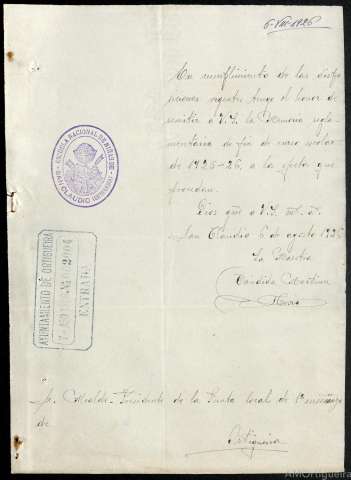 6-VIII-1926
En cumplimiento de las dispo
siciones vigentes tengo el honor de
remitir a V.S. la Memoria regla-
mentaria de fin de curso escolar
de 1925-26, a los efectos que
procedan.
Dios gue a V.S. ms. as.
San Claudio 6 de agosto 1926
La Maestra
Candida Martinez
ESCUELA NACIONAL DE NIÑAS DE
SAN CLAUDIO (ORTIGUEIRA)
AYUNTAMIENTO DE ORTIGUEIRA
2204
ENTRADA
Sr. Alcalde-Presidente de la Junta local de 1ª enseñanza
de
Ortigueira
AMOrtigueira